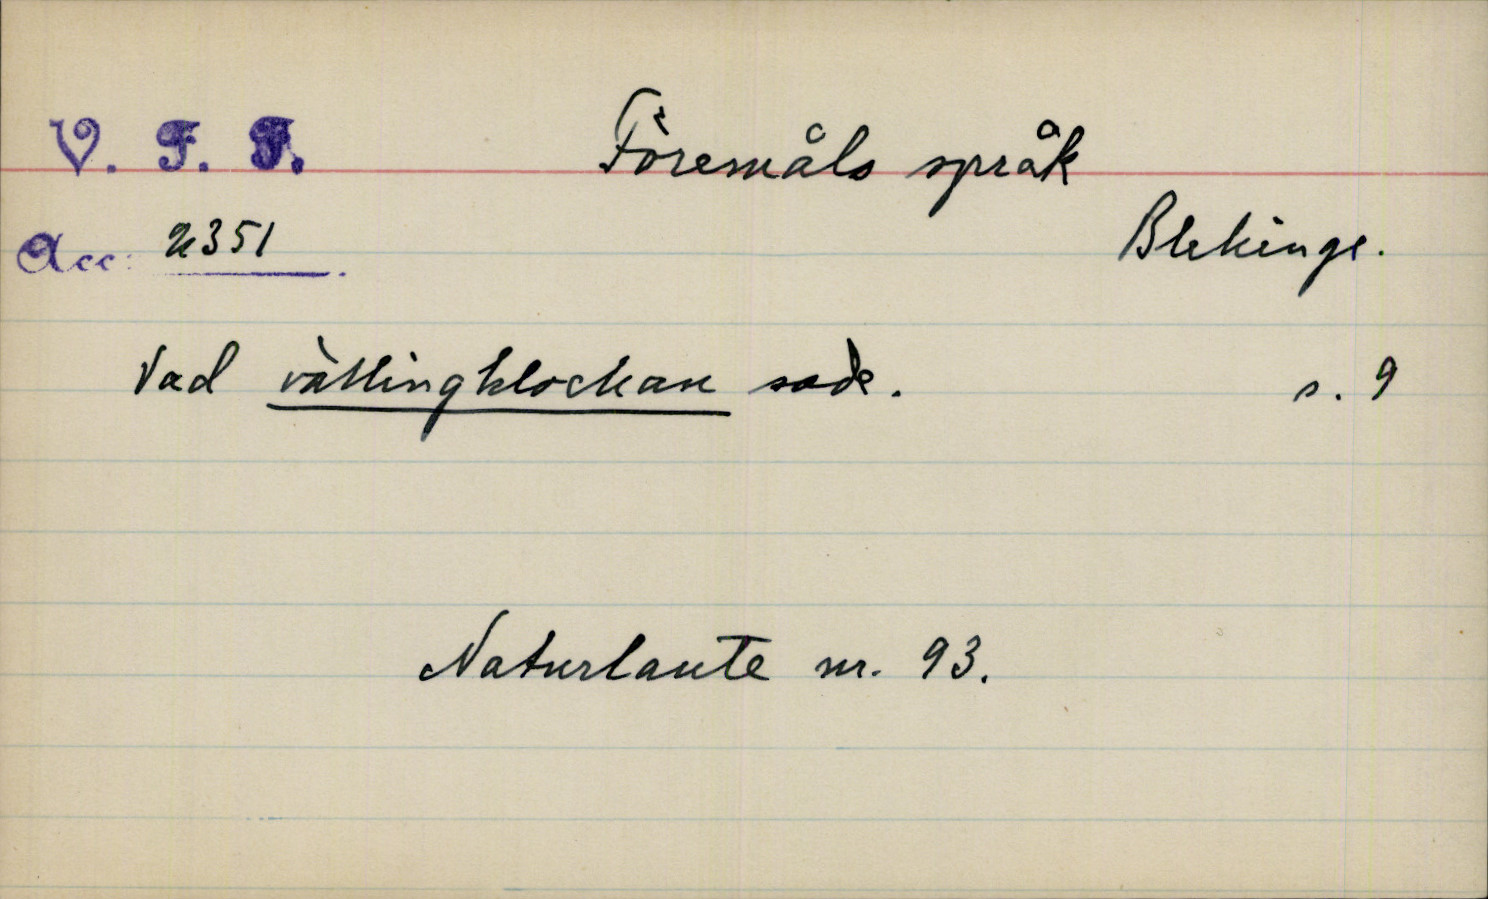 V. F. F. Föremåls språk
Acc: 2351 Blekinge.
Vad vällingklockan sade. s. 9
Naturlaute nr. 93.